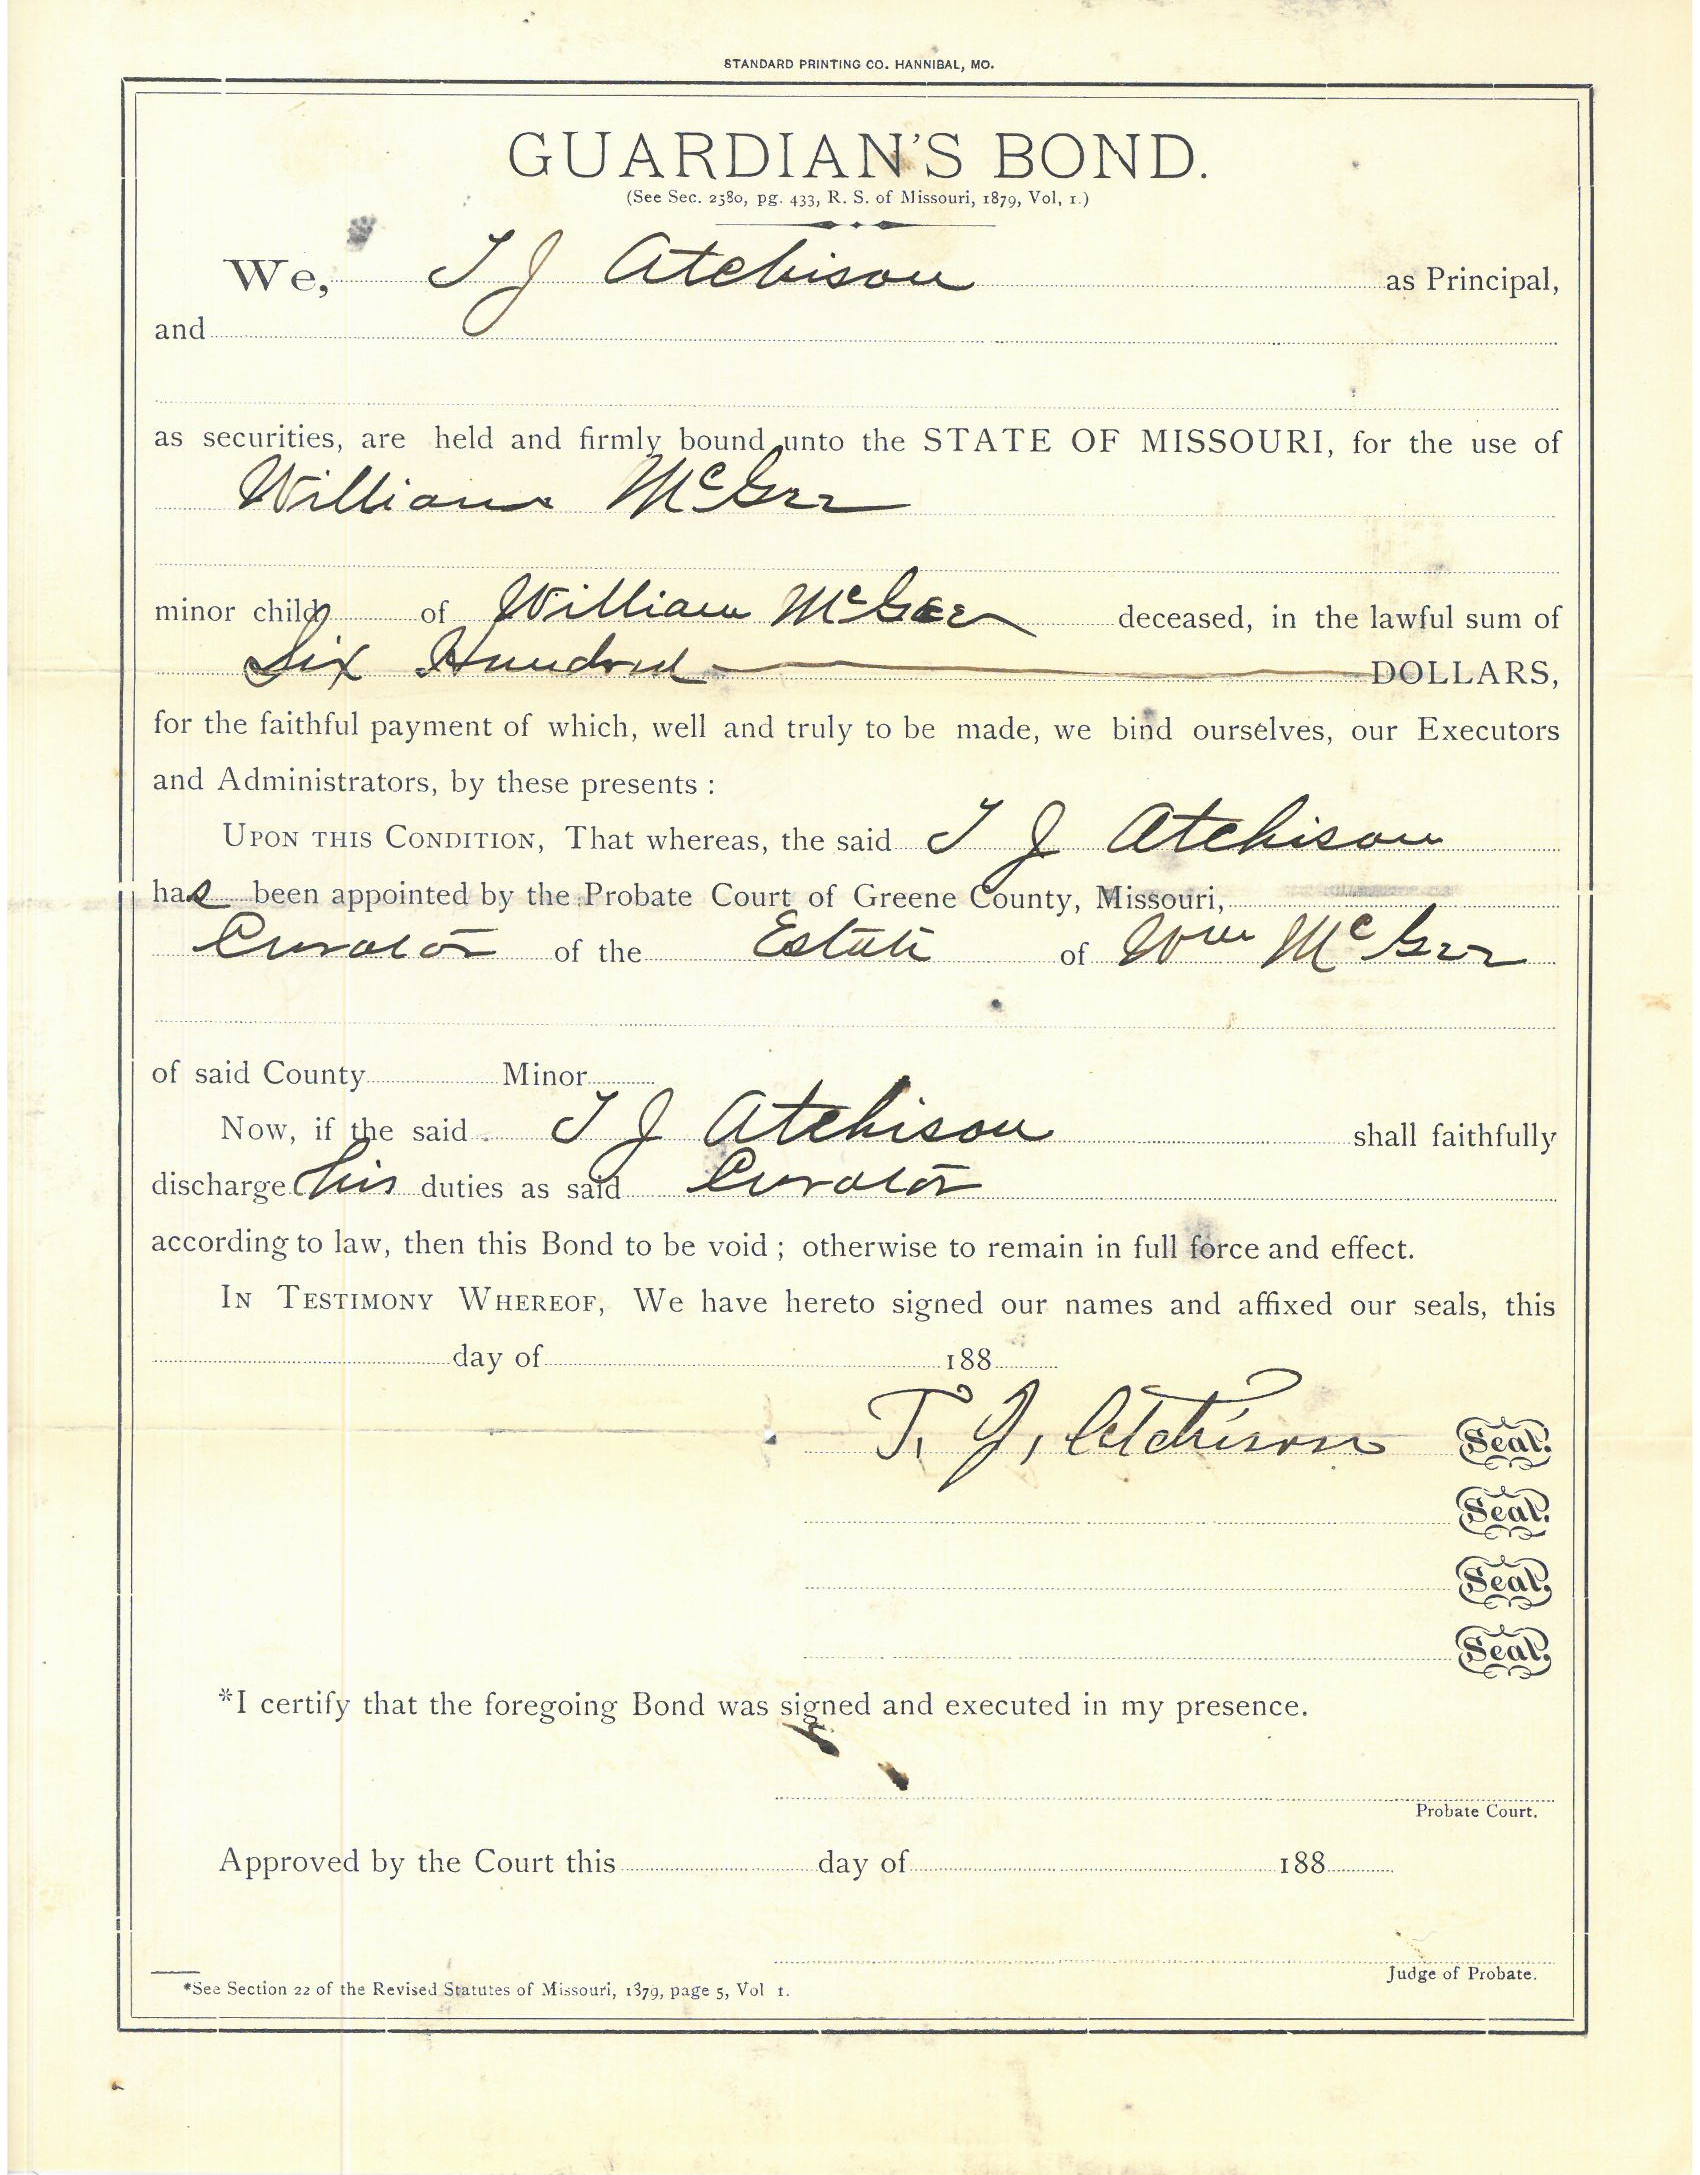 STANDARD PRINTING CO. HANNIBAL, MO.
GUARDIAN'S BOND.
(See Sec. 2580, pg. 433, R. S. of Missouri, 1879, Vol, 1.)
We, T J Atchison as Principal,
and
as securities, are held and firmly bound unto the STATE OF MISSOURI, for the use of
William McGee
minor child of William McGee deceased, in the lawful sum of
Six Hundred DOLLARS,
for the faithful payment of which, well and truly to be made, we bind ourselves, our Executors
and Administrators, by these presents :
UPON THIS CONDITION, That whereas, the said T J Atchison
has been appointed by the Probate Court of Greene County, Missouri,
Curator of the Estate of Wm McGee
of said County Minor
Now, if the said T J Atchison shall faithfully
discharge his duties as said Curator
according to law, then this Bond to be void ; otherwise to remain in full force and effect.
IN TESTIMONY WHEREOF, We have hereto signed our names and affixed our seals, this
day of 188
T. J. Atchison Seal.
Seal.
Seal.
Seal.
*I certify that the foregoing Bond was signed and executed in my presence.
Probate Court.
Approved by the Court this day of 188
Judge of Probate.
*See Section 22 of the Revised Statutes of Missouri, 1879, page 5, Vol 1.